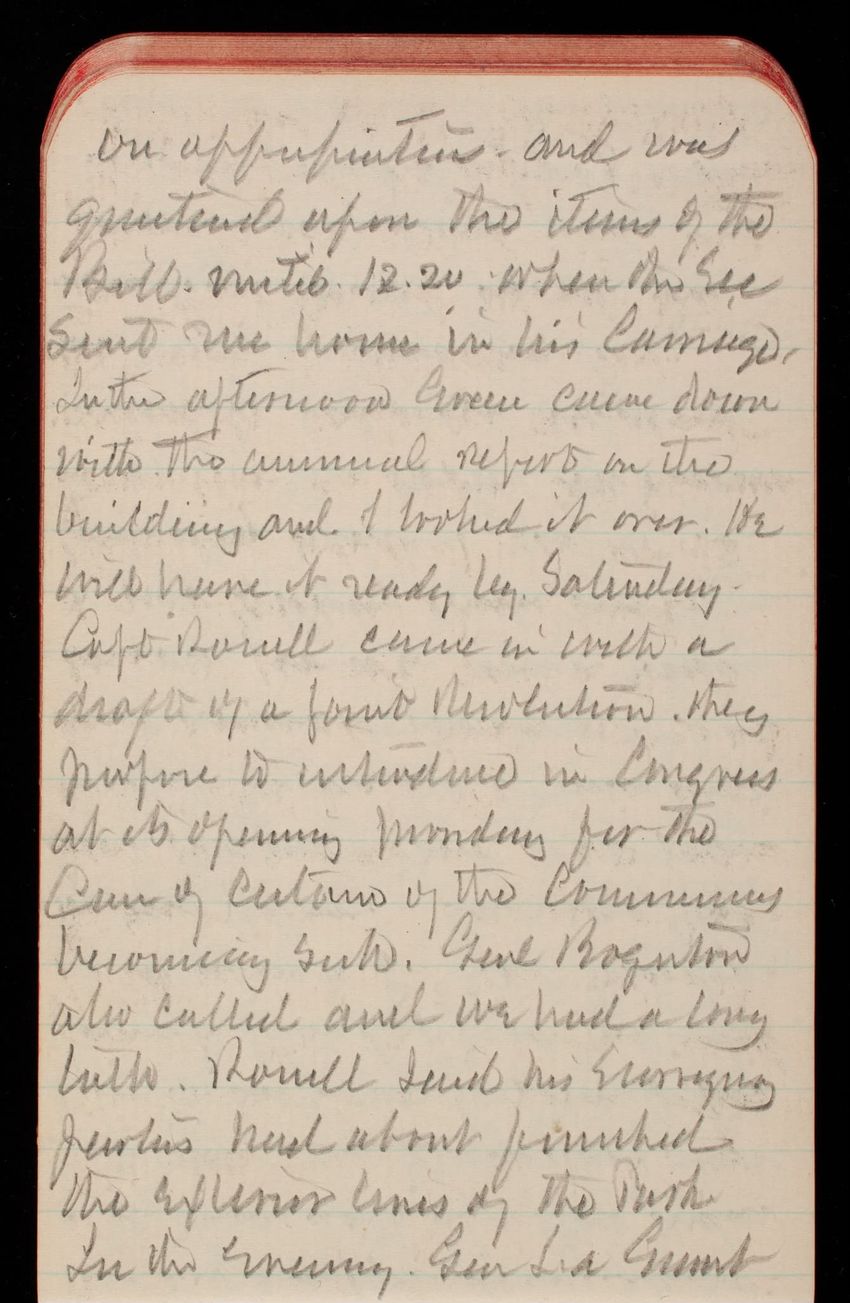 on appropriation - and was
questioned upon the items of the
Bill. until 12.20. when the Sec
Sent me home in his Carriage.
In the afternoon Green came down
with the annual report on the
building and I looked it over. He
will have it ready by Saturday.
Capt Rowell came in with a
draft of a joint Resolution. they
purpose to introduce in Congress
at its opening Monday for the
Care of certain of the Commissions
becoming sick. Genl Boynton
also called and we had a long
talk. Rowell said his Surveying
parties had about finished
the exterior lines of the Park
In the evening. Gen L. A Grant